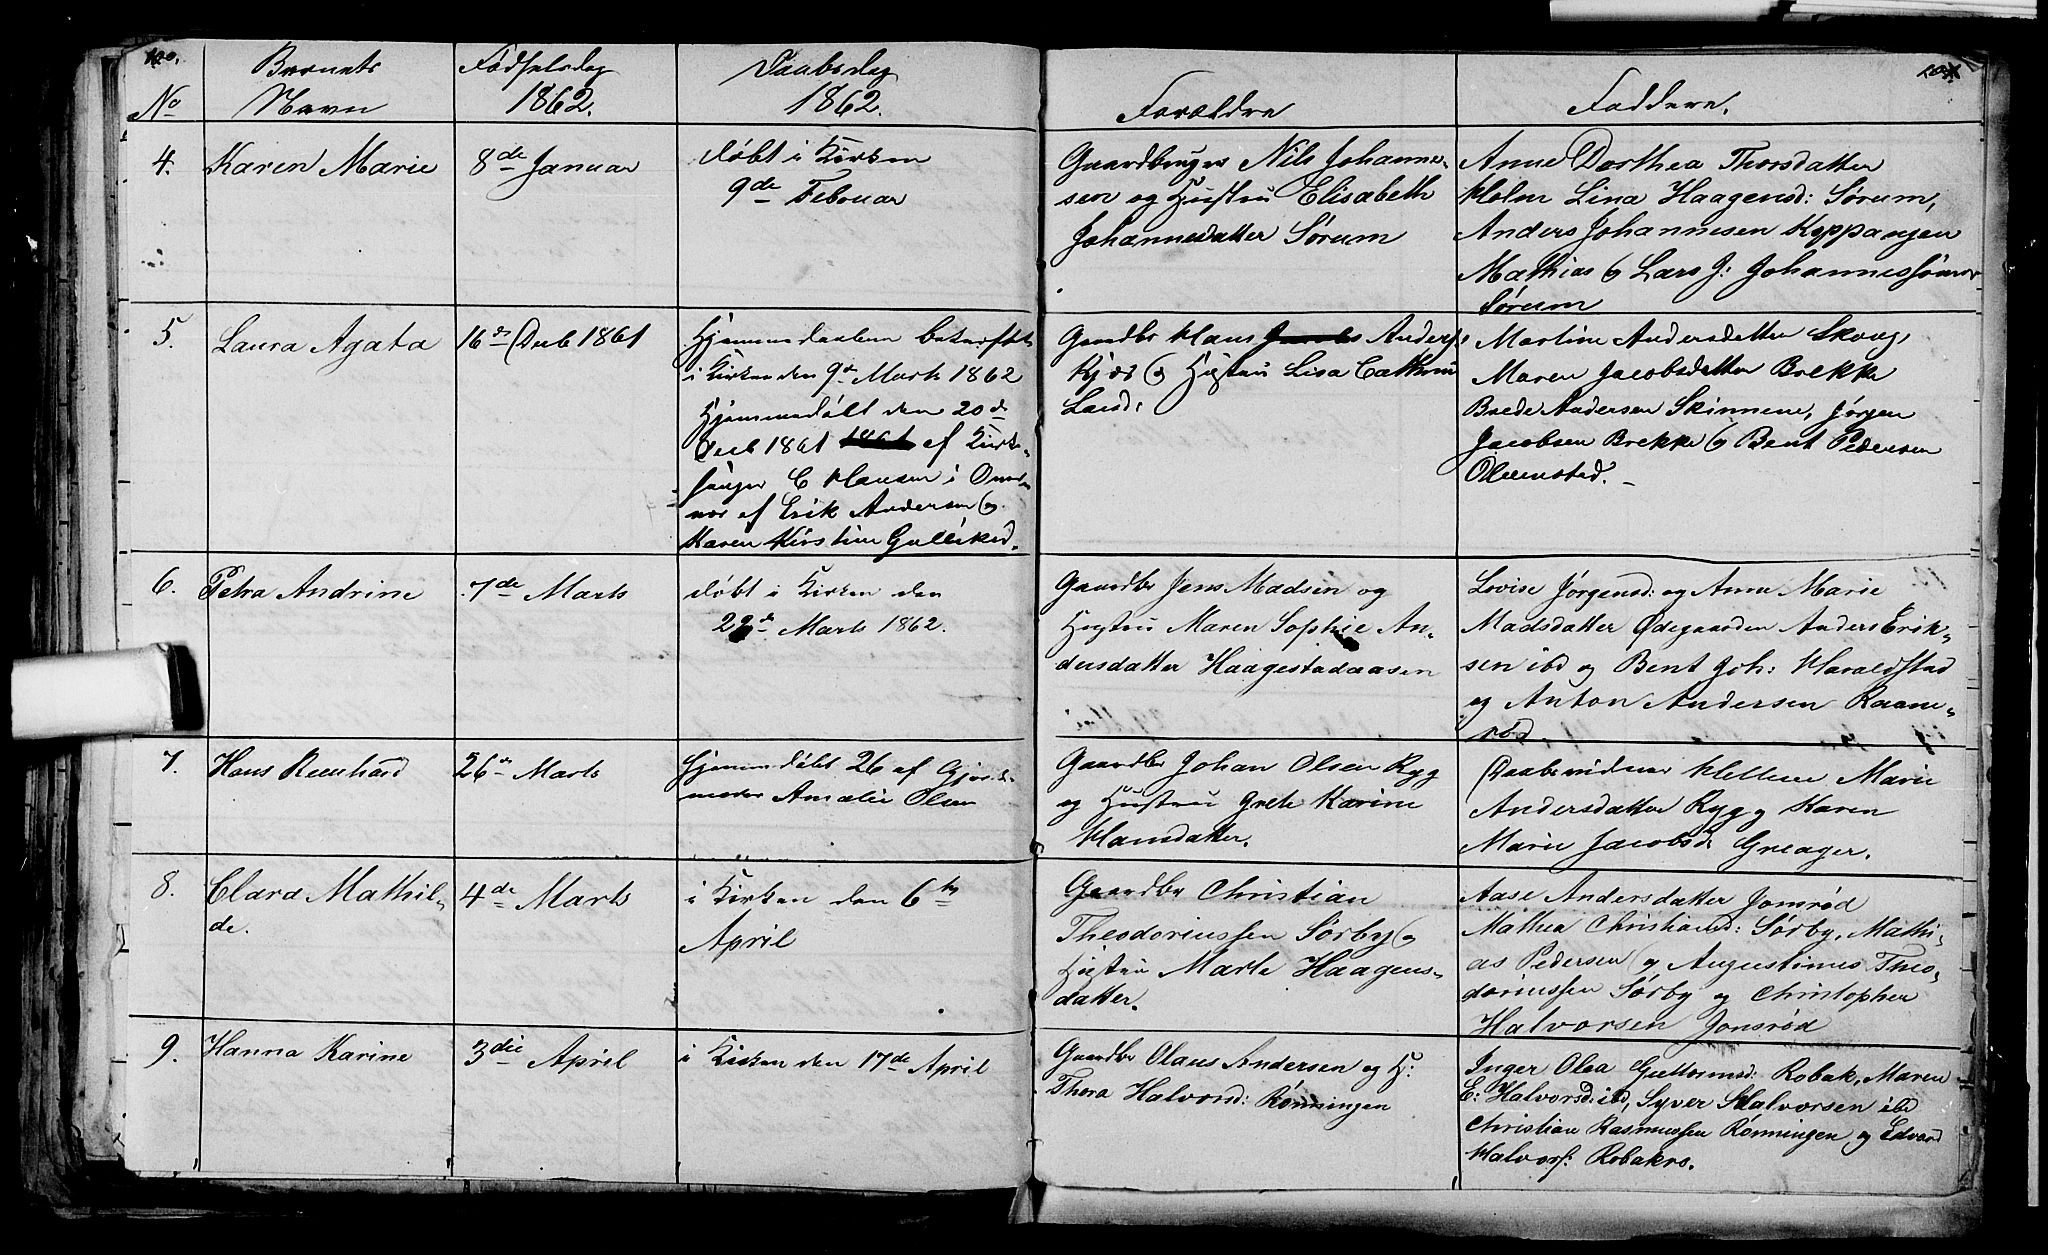 100.
No
Barnets
Navn
Fødselsdag
1862.
Daabsdag
1862.
Forældre
Faddere.
4.
Karen Marie
8de Januar
døbt i Kirken
9de Februar
Gaardbruger Nils Johanne-
sen og Hustru Elisabeth
Johannesdatter Sørum
Anne Dorthea Thorsdatter
Holm Lina Haagensd: Sørum,
Anders Johannesen Keppangen
Mathias og Lars J: Johannessønner
Sørum
5.
Laura Agata
16de Decb 1861
Hjemmedaaben bekræftet
i Kirken den 9de Marts 1862
Hjemmedøbt den 20de
Decb 1861 1861 af Kirke-
sanger C Hansen i
af Erik Andersen og
Karen Kirstine Gulliksd.
Gaardbr Hans Anders:
Kjær og Hustru Lisa Cathrine
Larsd:
Martine Andersdatter Skoug,
Maren Jacobsdatter Brekke
Brede Andersen Skinnene, Jørgen
Jacobsen Brekke og Bent Pedersen
Olumstad.
6.
Petra Andrine
7de Marts
døbt i Kirken den
22de Marts 1862.
Gaardbr Jens Madsen og
Hustru Maren Sophie An-
dersdatter Haagestadaasen
Lovise Jørgensd: og Anne Marie
Madsdatter Ødegaarden Anders Erik-
sen ibd og Bent Joh: Haraldstad
og Anton Andersen Raane-
rød.
7.
Hans Reenhard
26de Marts
hjemmedøbt 26 af Gjord-
moder Amalie Olsen
Gaardbr Johan Olsen Ryg
og Hustru Grete Karine
Hansdatter.
Daabsvidner Helene Marie
Andersdatter Ryg og Karen
Marie Jacobsd: Greager.
8.
Clara Mathil-
de.
4de Marts
i Kirken den 6te
April
Gaardbr Christian
Theodoriussen Sørby og
Hustru Marte Haagens-
datter.
Aase Andersdatter Jonsrød
Mathea Christiansd: Sørby, Mathi-
as Pedersen og Augustinus Theo-
doriussen Sørby og Christopher
Halvorsen Jonsrød
9.
Hanna Karine
3die April
i Kirken den 17de April
Gaardbr Olaus Andersen og H:
Thora Halvorsd: Rønningen
Inger Olea Guttormsd: Robak, Maren
E: Halvorsd: ibd, Syver Halvorsen ibd
Christian Rasmussen Rønningen, og Edvard
Halvors: Robakro.